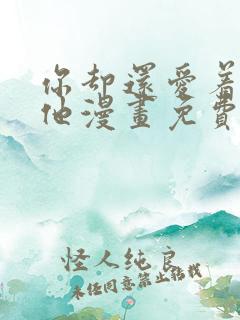 你却還愛着
他漫畫免費
怪人纯良
未经同意禁止转载